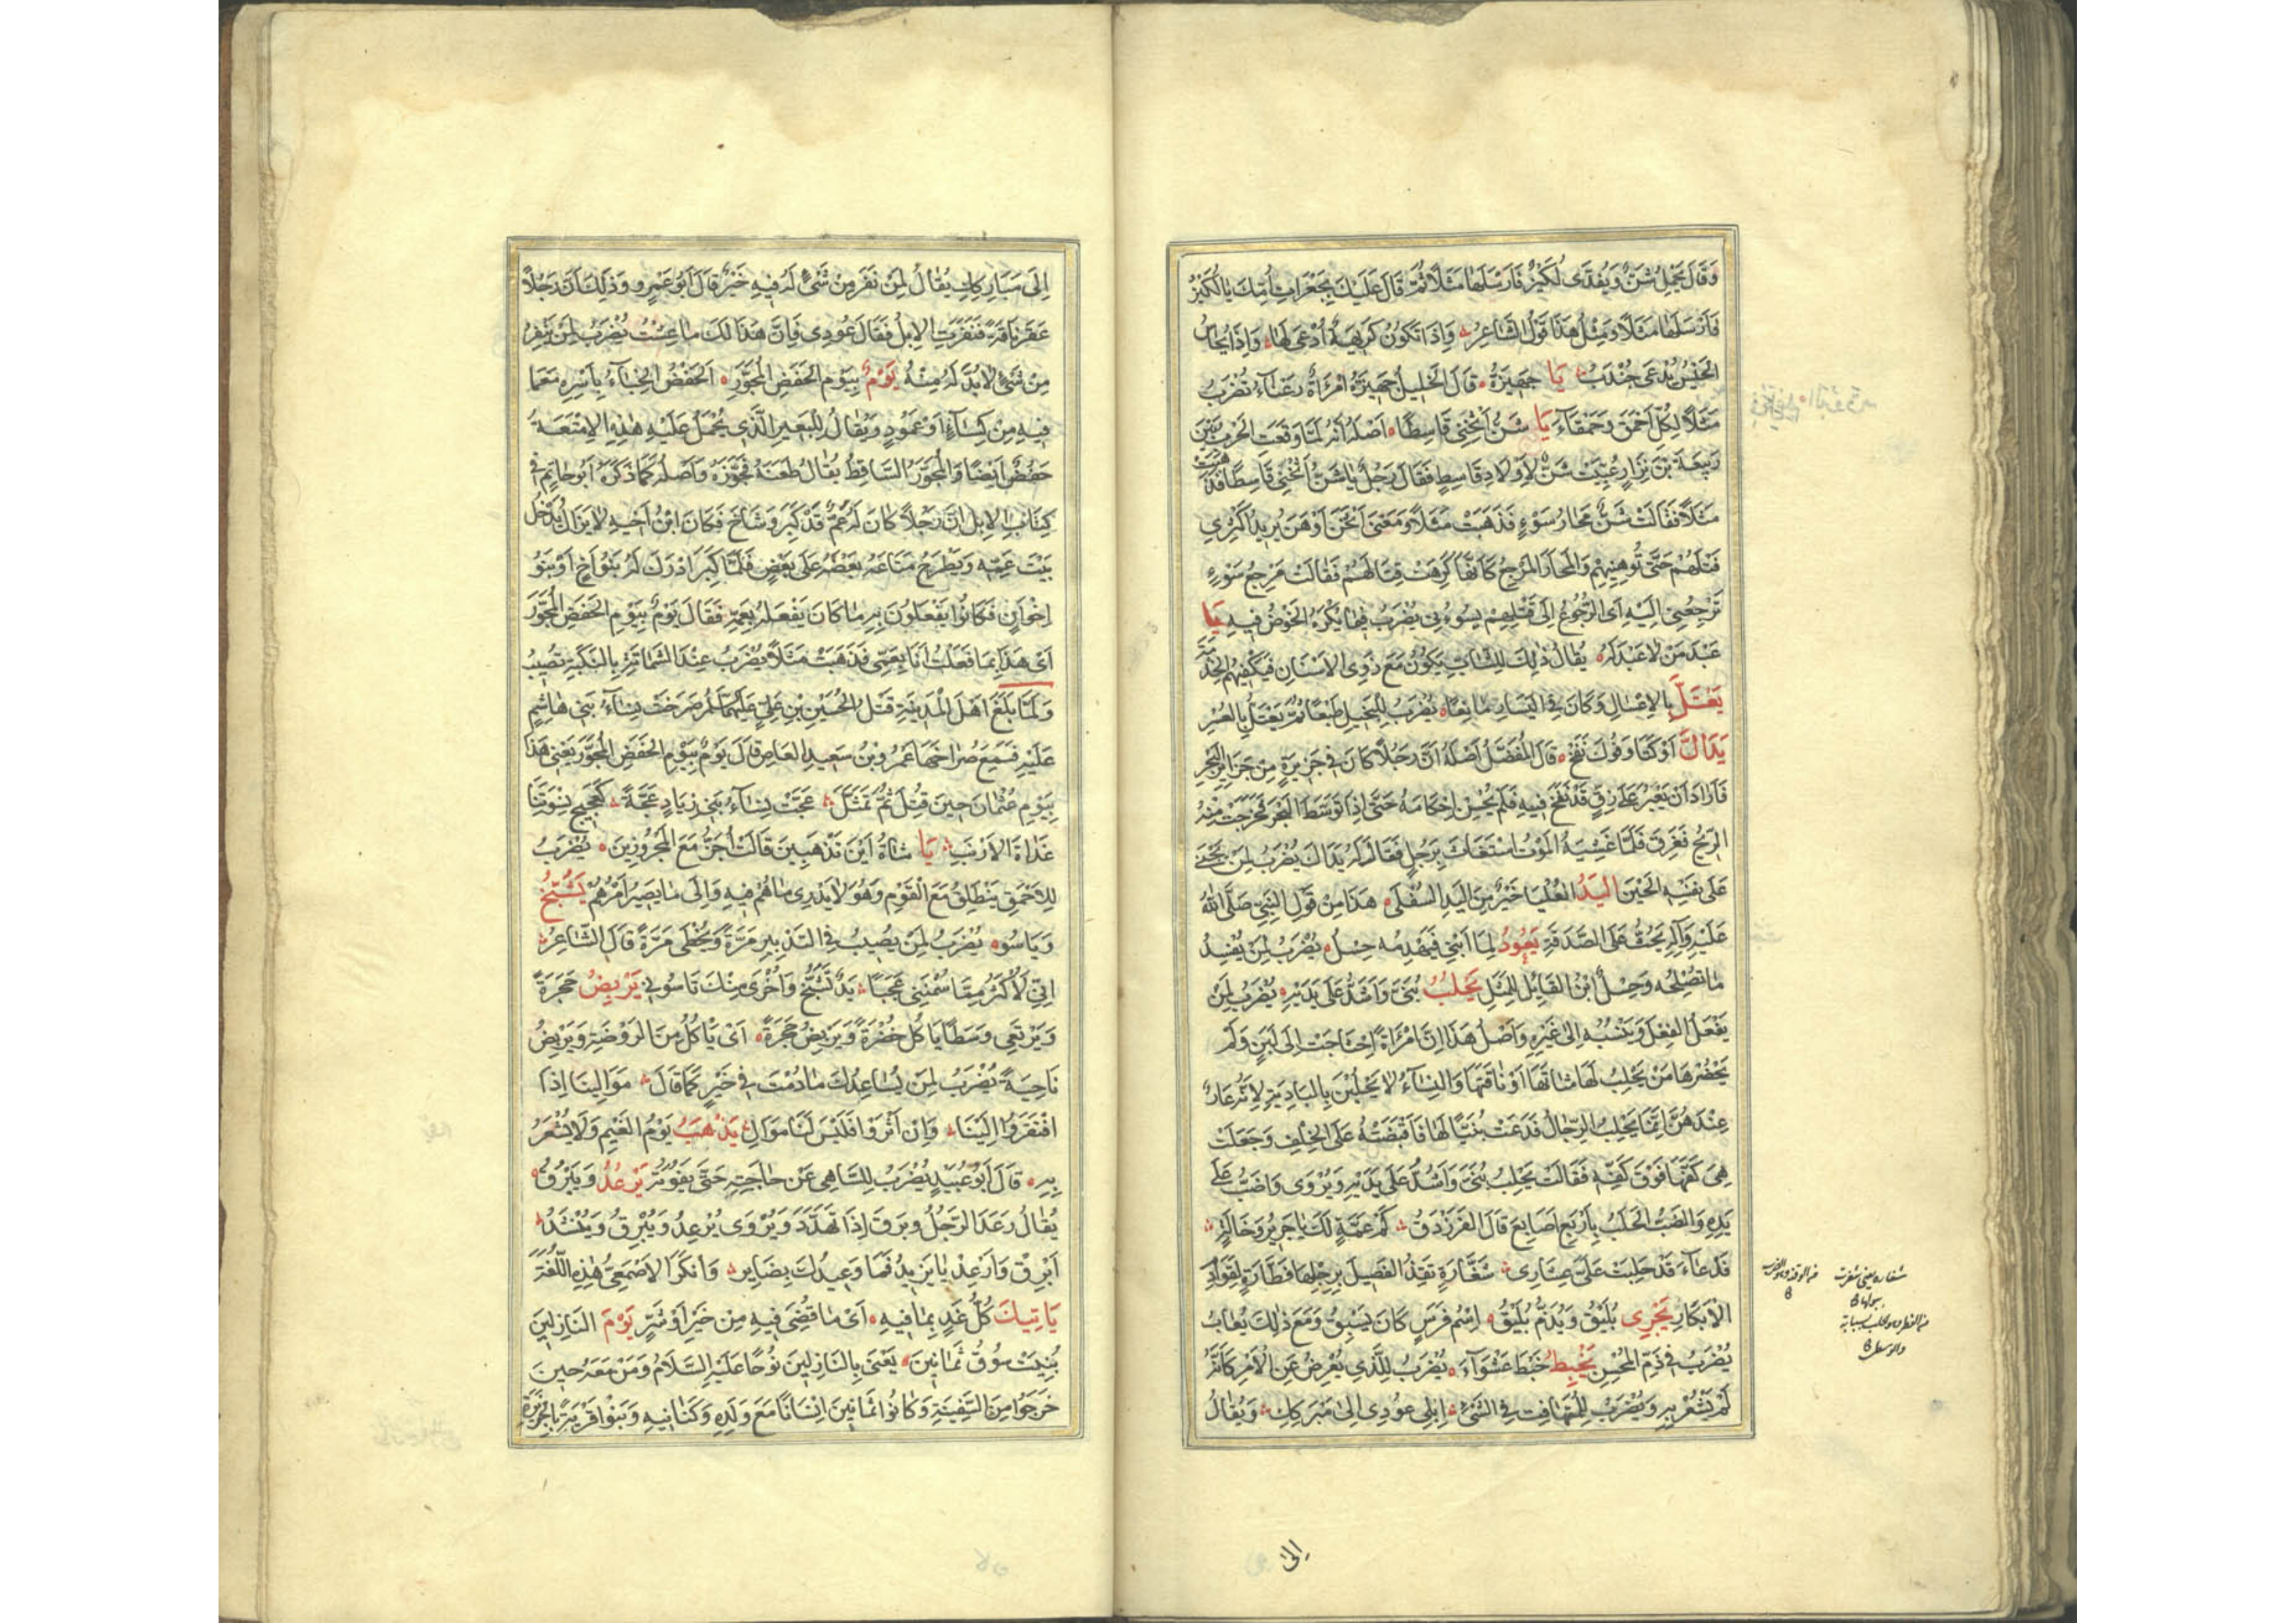 وَقَالَ يَحْمِلُ شَنٌّ وَيُفَدَّى لُكَيْزٌ فَارْسَلَهَا مَثَلًا ثُمَّ قَالَ عَلَيْكَ بِجَعَرَاتِ أُمِّكَ يَا لُكَيْزُ
فَارْسَلَهَا مَثَلًا وَمِثْلُ هَذَا قَوْلُ الشَّاعِرِ وَإِذَا تَكُونُ كَرِيهَةٌ أُدْعَى لَهَا وَإِذَا يُحَاسُ
الْحَيْسُ يُدْعَى جُنْدَبُ يَا جَهِيزَةُ قَالَ الْخَلِيلُ جَهِيزَةُ امْرَأَةٌ رَعْنَاءُ تُضْرَبُ
مَثَلًا لِكُلِّ أَحْمَقَ وَحَمْقَاءَ يَا شَنُّ أَثْخِنِي قَاسِطًا أَصْلُهُ أَنَّهُ لَمَّا وَقَعَتِ الْحَرْبُ بَيْنَ
رَبِيعَةَ بْنِ نِزَارٍ عُبِّئَتْ شَنٌّ لِأَوْلَادِ قَاسِطٍ فَقَالَ رَجُلٌ يَا شَنُّ أَثْخِنِي قَاسِطًا فَذَهَبَتْ
مَثَلًا فَقَالَتْ شَنٌّ مَحَارُ سَوْءٍ فَذَهَبَتْ مَثَلًا وَمَعْنَى أَثْخَنَ أَوْهَنَ يُرِيدُ أَكْثِرِي
قَتْلَهُمْ حَتَّى تُوهِنِيهِمْ وَالْمَحَارُ الْمَرْجِعُ كَأَنَّهَا كَرِهَتْ قِتَالَهُمْ فَقَالَتْ مَرْجِعُ سَوْءٍ
تَرْجِعُنِي إِلَيْهِ أَى الرُّجُوعُ إِلَى قَتْلِهِمْ يَسُوءُنِي يُضْرَبُ فِيمَا يُكْرَهُ الْخَوْضُ فِيهِ يَا
عَبْدَ مَنْ لَا عَبْدَ لَهُ يُقَالُ ذَلِكَ لِلشَّابِّ يَكُونُ مَعَ ذَوِى الْأَسْنَانِ فَيَكْفِيهِمُ الْخِدْمَةَ
يَعْتَلُّ بِالْإِعْسَارِ وَكَانَ فِي الْيَسَارِ مَانِعًا يُضْرَبُ لِلْبَخِيلِ طَبْعًا ثُمَّ يَعْتَلُّ بِالْعُسْرِ
يَدَاكَ أَوْكَتَا وَفُوكَ نَفَخَ قَالَ الْمُفَضَّلُ أَصْلُهُ أَنَّ رَجُلًا كَانَ فِي جَزِيرَةٍ مِنْ جَزَائِرِ الْبَحْرِ
فَأَرَادَ أَنْ يَعْبُرَ عَلَى زِقٍّ قَدْ نَفَخَ فِيهِ فَلَمْ يُحْسِنْ إِحْكَامَهُ حَتَّى إِذَا تَوَسَّطَ الْبَحْرَ خَرَجَتْ مِنْهُ
الرِّيحُ فَغَرِقَ فَلَمَّا غَشِيَهُ الْمَوْتُ اسْتَغَاثَ بِرَجُلٍ فَقَالَ لَهُ يَدَاكَ يُضْرَبُ لِمَنْ يَجْنِى
عَلَى نَفْسِهِ الْحَيْنَ الْيَدُ الْعُلْيَا خَيْرٌ مِنَ الْيَدِ السُّفْلَى هَذَا مِنْ قَوْلِ النَّبِيِّ صَلَّى اللهُ
عَلَيْهِ وَآلِهِ يَحُثُّ عَلَى الصَّدَقَةِ يَعُودُ لِمَا أَبْنِي فَيَهْدِمُهُ حِسْلٌ يُضْرَبُ لِمَنْ يُفْسِدُ
مَا تُصْلِحُهُ وَحِسْلٌ ابْنُ الْقَائِلِ لِلْمَثَلِ يَحْلُبُ بُنَيَّ وَأَشُدُّ عَلَى يَدَيْهِ يُضْرَبُ لِمَنْ
يَفْعَلُ الْفِعْلَ وَيَنْسُبُهُ إِلَى غَيْرِهِ وَأَصْلُ هَذَا إِنَّ امْرَأَةً احْتَاجَتْ إِلَى لَبَنٍ وَلَمْ
يَحْضُرْهَا مَنْ يَحْلِبُ لَهَا شَاتَهَا أَوْ نَاقَتَهَا وَالنِّسَاءُ لَا يَحْلُبْنَ بِالْبَادِيَةِ لِأَنَّهُ عَارٌ
عِنْدَهُنَّ إِنَّمَا يَحْلِبُ الرِّجَالُ فَدَعَتْ بُنَيًّا لَهَا فَأَقْبَضَتْهُ عَلَى الْخِلْفِ وَجَعَلَتْ
هِيَ كَفَّهَا فَوْقَ كَفِّهِ فَقَالَتْ يَحْلِبُ بُنَيَّ وَأَشُدُّ عَلَى يَدَيْهِ وَيُرْوَى وَأَضُبُّ عَلَى
يَدِهِ وَالضَّبُّ الْحَلْبُ بِأَرْبَعِ أَصَابِعَ قَالَ الْفَرَزْدَقُ كَمْ عَمَّةٍ لَكَ يَا جَرِيرُ وَخَالَةٍ
فَدْعَاءَ قَدْ حَلَبَتْ عَلَىَّ عِشَارِى شَغَّارَةٍ تَقِذُ الْفَصِيلَ بِرِجْلِهَا فَطَّارَةٍ لِقَوَادِمِ
الْأَبْكَارِ يَجْرِى بُلَيْقٌ وَيُذَمُّ بُلَيْقٌ اسْمُ فَرَسٍ كَانَ يَسْبِقُ وَمَعَ ذَلِكَ يُعَابُ
يُضْرَبُ فِي ذَمِّ الْمُحْسِنِ يَخْبِطُ خَبْطَ عَشْوَاءَ يُضْرَبُ لِلَّذِي يُعْرِضُ عَنِ الْأَمْرِ كَأَنَّهُ
لَمْ يَشْعُرْ بِهِ وَيُضْرَبُ لِلْمُتَهَافِتِ فِي الشَّيْءِ إِبِلِى عُودِى إِلَى مَبْرَكِكِ وَيُقَالُ
إِلَى
إِلَى مَبَارِكِكِ يُقَالُ لِمَنْ نَفَرَ مِنْ شَيْءٍ لَهُ فِيهِ خَيْرٌ قَالَ أَبُو عَمْرٍو وَذَلِكَ أَنَّ رَجُلًا
عَقَرَ نَاقَةً فَنَفَرَتِ الْإِبِلُ فَقَالَ عُودِى فَإِنَّ هَذَا لَكِ مَا عِشْتِ يُضْرَبُ لِمَنْ يَنْفِرُ
مِنْ شَيْءٍ لَا بُدَّ لَهُ مِنْهُ يَوْمٌ بِيَوْمِ الْحَفَضِ الْمُجَوَّرِ الْحَفَضُ الْخِبَاءُ بِأَسْرِهِ مَعَ مَا
فِيهِ مِنْ كِسَاءٍ أَوْ عَمُودٍ وَيُقَالُ لِلْبَعِيرِ الَّذِى يُحْمَلُ عَلَيْهِ هَذِهِ الْأَمْتِعَةُ
حَفَضٌ أَيْضًا وَالْمُجَوَّرُ السَّاقِطُ يُقَالُ طَعَنَهُ فَجَوَّرَهُ وَأَصْلُهُ كَمَا ذَكَرَهُ أَبُو حَاتِمٍ فِي
كِتَابِ الْإِبِلِ إِنَّ رَجُلًا كَانَ لَهُ عَمٌّ قَدْ كَبِرَ وَشَاخَ فَكَانَ ابْنُ أَخِيهِ لَا يَزَالُ يَدْخُلُ
بَيْتَ عَمِّهِ وَيَطْرَحُ مَتَاعَهُ بَعْضَهُ عَلَى بَعْضٍ فَلَمَّا كَبِرَ أَدْرَكَ لَهُ بَنُو أَخٍ أَوْ بَنُو
إِخْوَانٍ فَكَانُوا يَفْعَلُونَ بِهِ مَا كَانَ يَفْعَلُهُ بِعَمِّهِ فَقَالَ يَوْمٌ بِيَوْمِ الْحَفَضِ الْمُجَوَّرِ
أَىْ هَذَا بِمَا فَعَلْتُ أَنَا بِعَمِّى فَذَهَبَتْ مَثَلًا يُضْرَبُ عِنْدَ الشَّمَاتَةِ بِالنَّكْبَةِ تُصِيبُ
وَلَمَّا بَلَغَ أَهْلَ الْمَدِينَةِ قَتْلُ الْحُسَيْنِ بْنِ عَلِيٍّ صَرَخَتْ نِسَاءُ بَنِي هَاشِمٍ
عَلَيْهِ فَسَمِعَ صُرَاخَهَا عَمْرُو بْنُ سَعِيدِ الْعَاصِ قَالَ يَوْمٌ بِيَوْمِ الْحَفَضِ الْمُجَوَّرِ يَعْنِي هَذَا
بِيَوْمِ عُثْمَانَ حِينَ قُتِلَ ثُمَّ تَمَثَّلَ عَجَّتْ نِسَاءُ بَنِي زِيَادٍ عَجَّةً كَعَجِيجِ نِسْوَتِنَا
غَدَاةَ الْأَرْنَبِ يَا شَاةُ أَيْنَ تَذْهَبِينَ قَالَتْ أُجَزُّ مَعَ الْمَجْزُوزِينَ يُضْرَبُ
لِلْأَحْمَقِ يَنْطَلِقُ مَعَ الْقَوْمِ وَهُوَ لَا يَدْرِى مَا هُمْ فِيهِ وَإِلَى مَا يَصِيرُ أَمْرُهُمْ يَشُجُّ
وَيَأْسُو يُضْرَبُ لِمَنْ يُصِيبُ فِي التَّدْبِيرِ مَرَّةً وَيُخْطِى مَرَّةً قَالَ الشَّاعِرُ
إِنِّي لَأُكْثِرُ مِمَّا سُمْتَنِي عَجَبًا يَدٌ تَشُجُّ وَأُخْرَى مِنْكَ تَأْسُونِي يَرْبِضُ حَجْرَةً
وَيَرْتَعِي وَسَطًا يَأْكُلُ خُضْرَةً وَيَرْبِضُ حَجْرَةً أَىْ يَأْكُلُ مِنَ الرَّوْضَةِ وَيَرْبِضُ
نَاحِيَةً يُضْرَبُ لِمَنْ يُسَاعِدُكَ مَا دُمْتَ فِي خَيْرٍ كَمَا قَالَ مَوَالِينَا إِذَا
افْتَقَرُوا إِلَيْنَا وَإِنْ أَثْرَوْا فَلَيْسَ لَنَا مَوَالِ يَذْهَبُ يَوْمُ الْغَيْمِ وَلَا يُشْعَرُ
بِهِ قَالَ أَبُو عُبَيْدٍ يُضْرَبُ لِلسَّاهِى عَنْ حَاجَتِهِ حَتَّى تَفُوتَهُ يَرْعُدُ وَيَبْرُقُ
يُقَالُ رَعَدَ الرَّجُلُ وَبَرَقَ إِذَا تَهَدَّدَ وَيُرْوَى يُرْعِدُ وَيُبْرِقُ وَيُنْشَدُ
أَبْرِقْ وَأَرْعِدْ يَا يَزِيدُ فَمَا وَعِيدُكَ بِضَايِرِ وَأَنْكَرَ الْأَصْمَعِىُّ هَذِهِ اللُّغَةَ
يَأْتِيكَ كُلُّ غَدٍ بِمَا فِيهِ أَىْ مَا قُضِىَ فِيهِ مِنْ خَيْرٍ أَوْ شَرٍّ يَوْمَ النَّازِلِينَ
بُنِيَتْ سُوقُ ثَمَانِينَ يَعْنَى بِالنَّازِلِينَ نُوحًا عَلَيْهِ السَّلَامُ وَمَنْ مَعَهُ حِينَ
خَرَجُوا مِنَ السَّفِينَةِ وَكَانُوا ثَمَانِينَ إِنْسَانًا مَعَ وَلَدِهِ وَكَنَائِنِهِ وَبَنَوْا قَرْيَةً بِالْجَزِيرَةِ